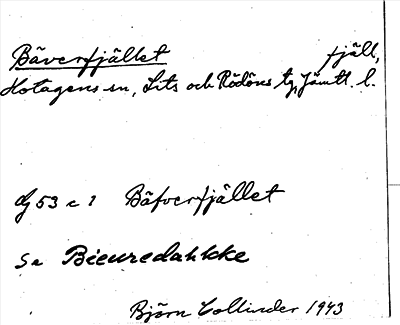 Bäverfjället fjäll,
Hotagens sn, Lits och Rödöns tg, Jämtl. l.
dg 53 c 1 Bäfverfjället
Sa Bieuredahkke
Björn Collinder 1943